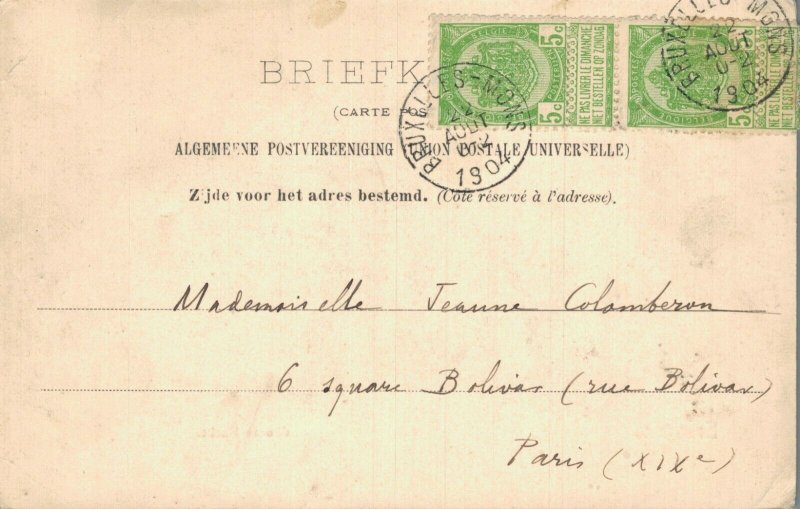 BRIEFK
(CARTE POS
ALGEMEENE POSTVEREENIGING (UNION POSTALE UNIVERSELLE)
Zijde voor het adres bestemd. (Côté réservé à l'adresse).
BELGIE 5c 5c
NE PAS LIVRER LE DIMANCHE
NIET BESTELLEN OP ZONDAG
POSTES BELGIQUE 5c
NE PAS LIVRER LE DIMANCHE
NIET BESTELLEN OP ZONDAG
BRUXELLES-MONS
22
AOUT
0-2
1904
BRUXELLES-MONS
22
AOUT
0-2
1904
Mademoiselle Jeanne Colomberon
6 square Bolivar (rue Bolivar)
Paris (XIXe)